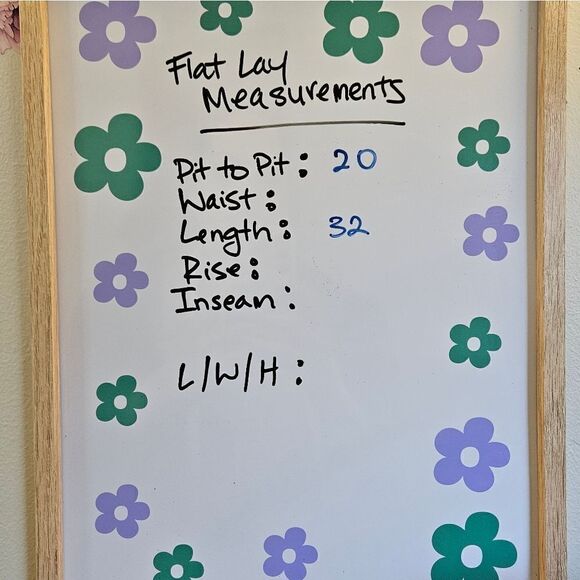 Flat Lay
Measurements
Pit to Pit: 20
Waist:
Length: 32
Rise:
Inseam:
L/W/H: